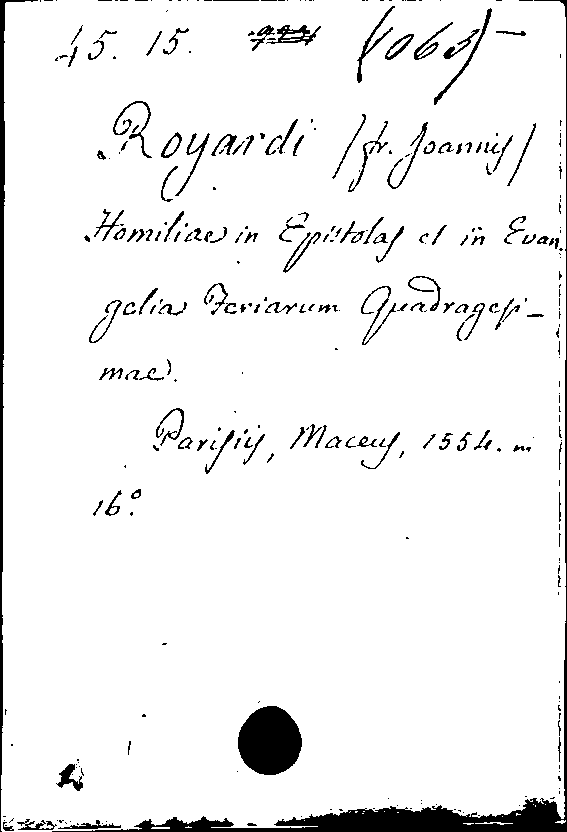 45. 15. (1063)
Royardi /fr. Joannis/
Homiliae in Epistolas et in Evan
gelia Feriarum Quadragesi-
mae.
Parisiis, Maceus, 1554. in
16°.